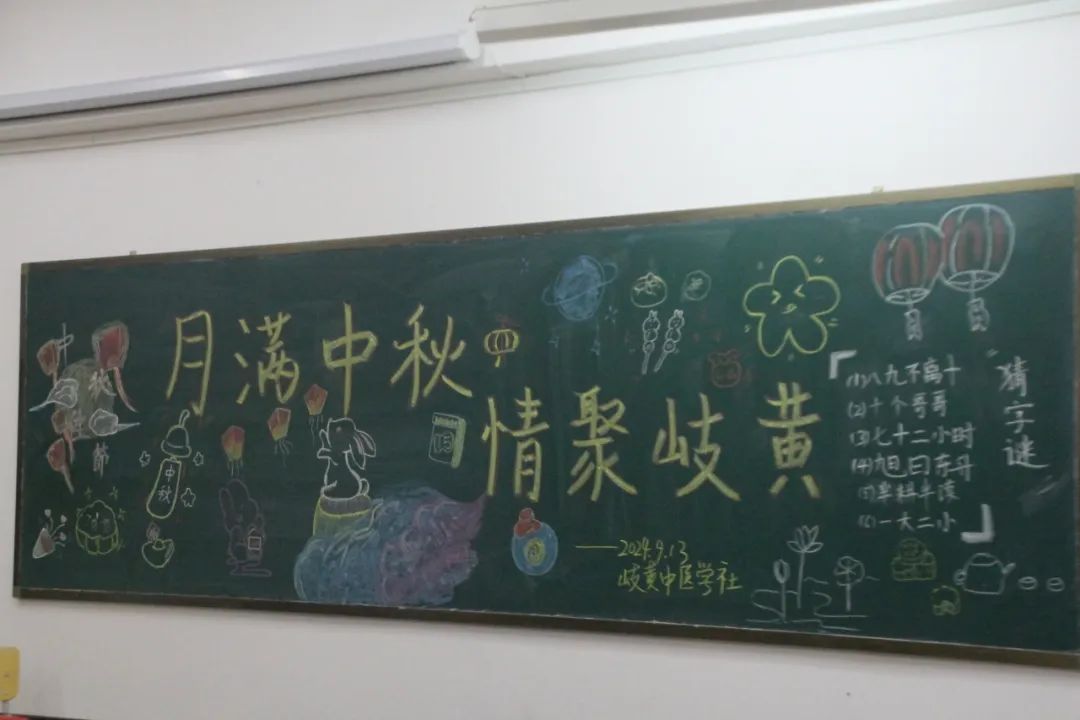 中秋节
月满中秋
中秋
15
情聚岐黄
——2024.9.13
岐黄中医学社
猜字谜
『(1)八九不离十
(2)十个哥哥
(3)七十二小时
(4)旭日东升
(5)半
(6)一大二小』